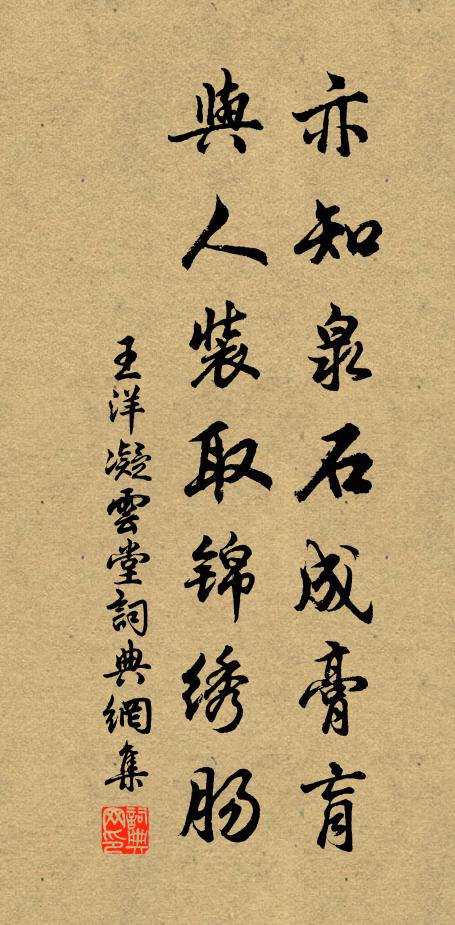 亦知泉石成膏肓
與人裝取锦绣肠
王洋凝雲堂詞典網集
詞典网印